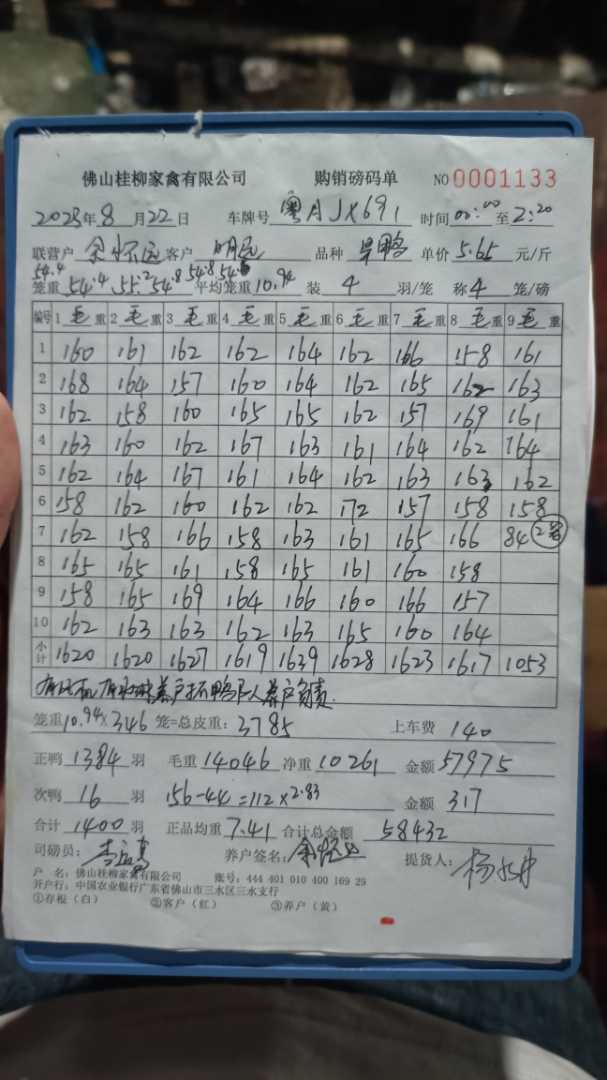 佛山桂柳家禽有限公司 购销磅码单 NO 0001133
2023年8月22日 车牌号 粤AJX691 时间 00:00 至 2:20
联营户 余怀远 客户 明远 品种 旱鸭 单价 5.65 元/斤
54.4 54.8 54.6
笼重 54.4 55.2 54.8 平均笼重 10.94 装 4 羽/笼 称 4 笼/磅
编号 1 毛重 2 毛重 3 毛重 4 毛重 5 毛重 6 毛重 7 毛重 8 毛重 9 毛重
1 160 161 162 162 164 162 166 158 161
2 168 164 157 160 164 162 165 162 163
3 162 158 160 165 165 162 157 169 161
4 163 160 162 167 163 161 164 162 164
5 162 164 167 161 164 162 163 163 162
6 158 162 160 162 162 172 157 158 158
7 162 158 166 158 163 161 165 166 84 2笼
8 165 165 161 158 165 161 160 158
9 158 165 169 164 166 160 166 157
10 162 163 163 162 163 165 160 164
小计 1620 1620 1627 1619 1639 1628 1623 1617 1053
养户抓鸭工人养户负责
笼重 10.94×346 笼=总皮重: 3785 上车费 140
正鸭 1384 羽 毛重 14046 净重 10261 金额 57975
次鸭 16 羽 156-44=112×2.83 金额 317
合计 1400 羽 正品均重 7.41 合计总金额 58432
司磅员: 养户签名: 余怀远 提货人:
户 名: 佛山桂柳家禽有限公司 账号: 444 401 010 400 169 29
开户行: 中国农业银行广东省佛山市三水区三水支行
①存根(白) ②客户(红) ③养户(黄)